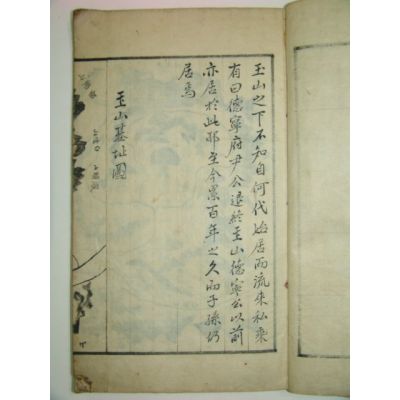 玉山之下不知自何代始居而流來私乘
有曰德寧府尹公遠於玉山德寧公以前
亦居於此耶至今累百年之久而子孫仍
居焉
玉山墓址圖